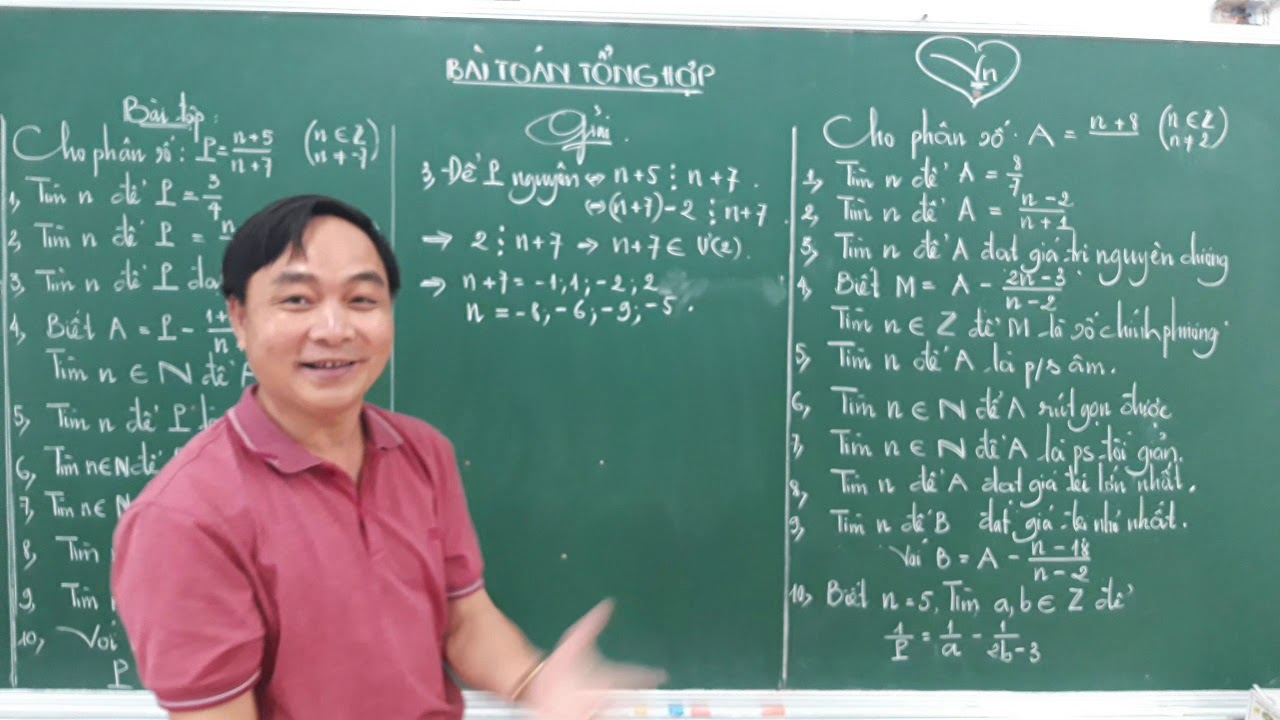 BÀI TOÁN TỔNG HỢP
√n
Bài tập:
Cho phân số: P = n+5/n+7 (n ∈ Z n ≠ -7)
1, Tìm n để P = 3/4
2, Tìm n để P = n
3, Tìm n để P đạ
4, Biết A = P - 1+/n
Tìm n ∈ N để A
5, Tìm n để P
6, Tìm n ∈ N để
7, Tìm n ∈ N
8, Tìm
9, Tìm
10, Với
P
Giải
3, Để P nguyên ⇔ n+5 ⋮ n+7.
⇔ (n+7)-2 ⋮ n+7.
⇒ 2 ⋮ n+7 ⇒ n+7 ∈ Ư(2).
⇒ n+7 = -1; 1; -2; 2
n = -8; -6; -9; -5.
Cho phân số: A = n+8/ (n ∈ Z n ≠ 2)
1, Tìm n để A = 8/7
2, Tìm n để A = n-2/n+1
3, Tìm n để A đạt giá trị nguyên dương
4, Biết M = A - 2n-3/n-2
Tìm n ∈ Z để M là số chính phương
5, Tìm n để A là p/s âm.
6, Tìm n ∈ N để A rút gọn được
7, Tìm n ∈ N để A là ps tối giản.
8, Tìm n để A đạt giá trị lớn nhất.
9, Tìm n để B đạt giá trị nhỏ nhất.
Với B = A - n-18/n-2
10, Biết n = 5, Tìm a, b ∈ Z để
1/P = 1/a - 1/2b-3